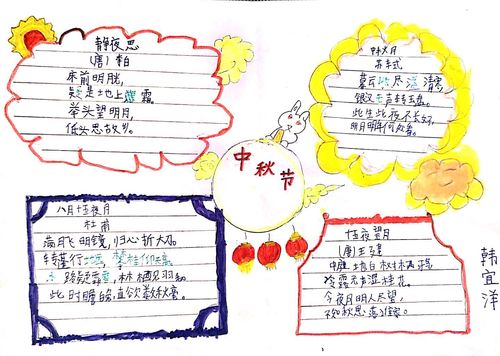 静夜思
(唐)李白
床前明胧,
疑是地上霜
举头望明月,
低头思故乡。
中秋月
苏轼
暮云收尽溢清寒
银汉无声转玉盘。
此生此夜不长好,
明月明年何处看。
中秋节
八月十五夜月
杜甫
满飞明镜,归心折大刀。
转蓬行地远,攀桂仰天高。
水路疑霜雪,林栖见羽
此时瞻白,直欲数秋
十五夜望月
(唐)王建
中庭地白树栖鸦
冷露无声湿桂花。
今夜月明人尽望,
不知秋思落谁家。
韩宜洋